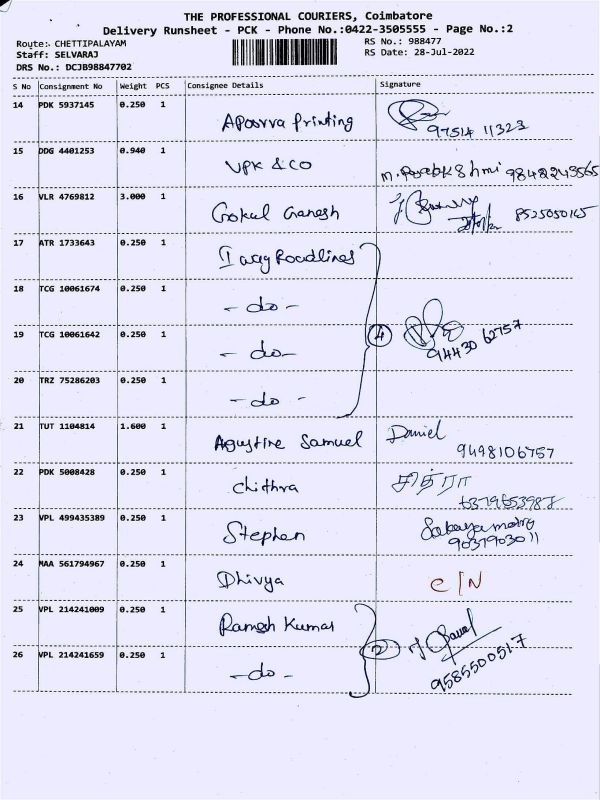 THE PROFESSIONAL COURIERS, Coimbatore
Delivery Runsheet - PCK - Phone No.:0422-3505555 - Page No.:2
Route: CHETTIPALAYAM
RS No.: 988477
Staff: SELVARAJ
RS Date: 28-Jul-2022
DRS No.: DCJB98847702
S No Consignment No Weight PCS Consignee Details Signature
14 PDK 5937145 0.250 1 Apoorva Printing 97514 11323
15 DDG 4401253 0.940 1 VPK & CO 9842243565
16 VLR 4769812 3.000 1 Gokul Ganesh 8525050165
17 ATR 1733643 0.250 1 Roadlines
18 TCG 10061674 0.250 1 - do -
19 TCG 10061642 0.250 1 - do - 4 94430 62757
20 TRZ 75286203 0.250 1 - do -
21 TUT 1104814 1.600 1 Agustine Samuel Daniel 9498106757
22 PDK 5008428 0.250 1 Chithra சித்ரா
23 VPL 499435389 0.250 1 Stephen 9037903011
24 MAA 561794967 0.250 1 Dhivya C/N
25 VPL 214241009 0.250 1 Ramesh Kumar
2 9585500517
26 VPL 214241659 0.250 1 - do -